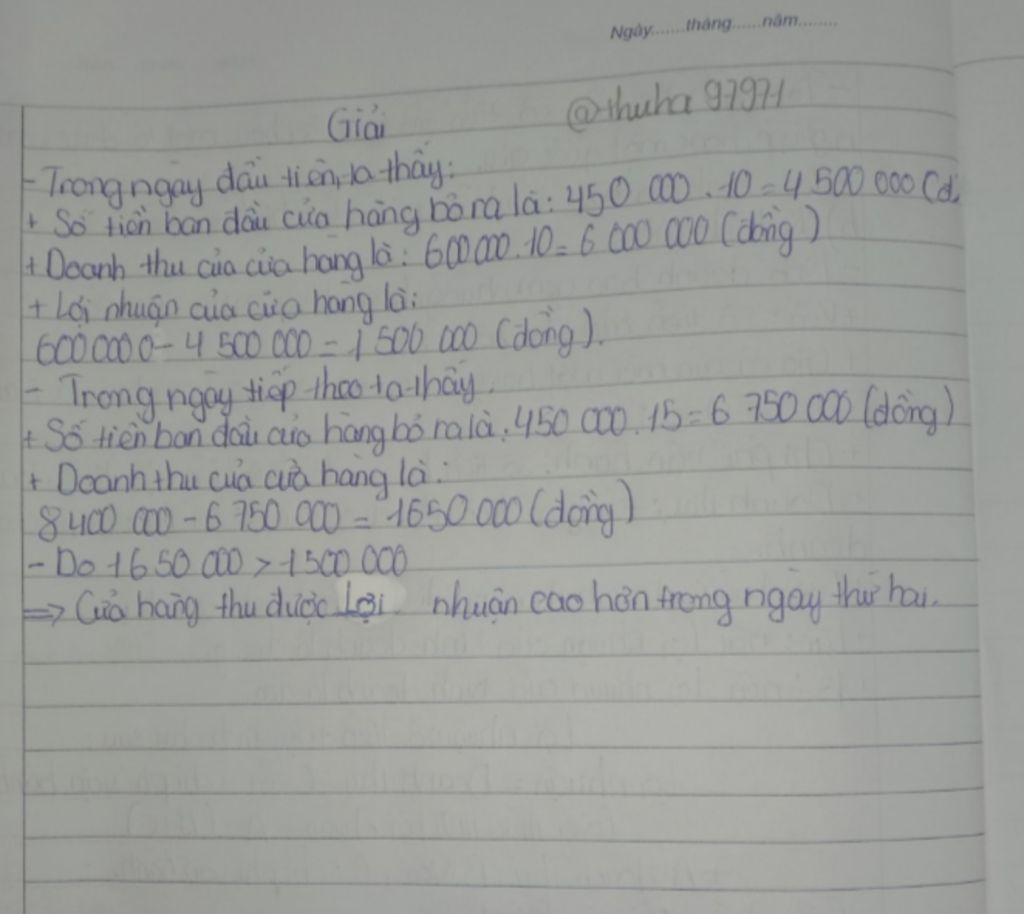 Ngày.......tháng......năm........
Giải @thuha97971
- Trong ngày đầu tiên, ta thấy:
+ Số tiền ban đầu cửa hàng bỏ ra là: 450 000 . 10 = 4 500 000 (đ
+ Doanh thu của cửa hàng là: 600 000 . 10 = 6 000 000 (đồng)
+ Lợi nhuận của cửa hàng là:
600 000 0 - 4 500 000 = 1 500 000 (đồng).
- Trong ngày tiếp theo ta thấy.
+ Số tiền ban đầu cửa hàng bỏ ra là: 450 000 . 15 = 6 750 000 (đồng)
+ Doanh thu của cửa hàng là:
8 400 000 - 6 750 000 = 1650 000 (đồng)
- Do 1 650 000 > 1 500 000
=> Cửa hàng thu được Lợi nhuận cao hơn trong ngày thứ hai.